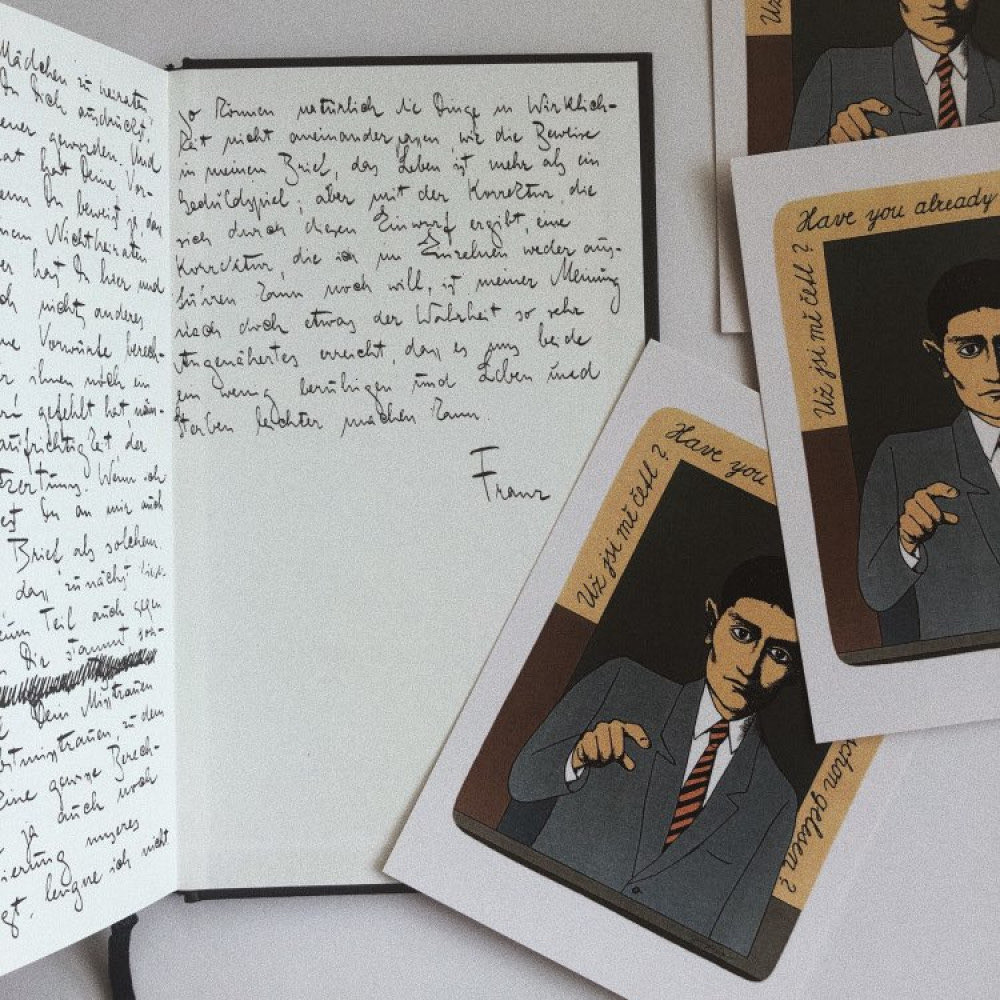 Mädchen zu heiraten
Du Dich ausdrückst,
geworden. Und
hat Deine Vor-
Du beweist ja, dass
Nichtheiraten
hat Du hier und
nicht anderes
Vorwürfe berech-
ihnen noch ein
gefehlt hat näm-
aufrichtigkeit, der
Wenn ich
Du an mir auch
Brief als solchem.
dass zunächst
Teil auch gegen
Dir stammt son-
Dein Misstrauen
zu dem
eine gewisse Berech-
ja auch noch
unseres
leugne ich nicht
so können natürlich die Dinge in Wirklich-
keit nicht aneinanderpassen, wie die Beweise
in meinem Brief, das Leben ist mehr als ein
Geduldspiel; aber mit der Korrektur, die
sich durch diesen Einwurf ergibt, eine
Korrektur, die ich im Einzelnen weder aus-
führen kann noch will, ist meiner Meinung
nach doch etwas der Wahrheit so sehr
Angenähertes erreicht, dass es uns beide
ein wenig beruhigen und Leben und
Sterben leichter machen kann.
Franz
Už
Have you already
Už jsi mě četl?
Have you
Už jsi mě četl?
schon gelesen?